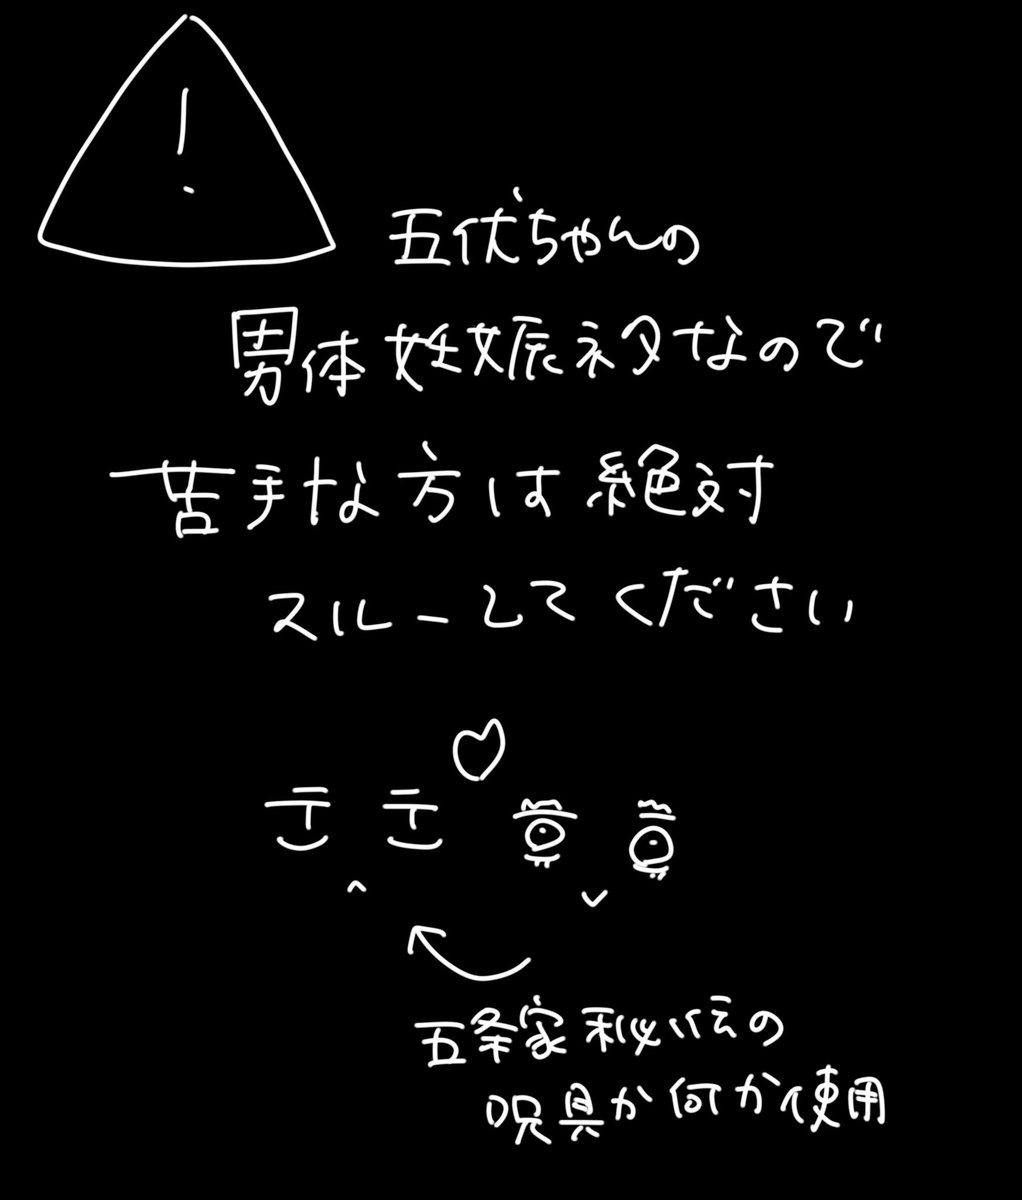 !
五伏ちゃんの
男体妊娠ネタなので
苦手な方は絶対
スルーしてください
五条家秘伝の
呪具か何か使用